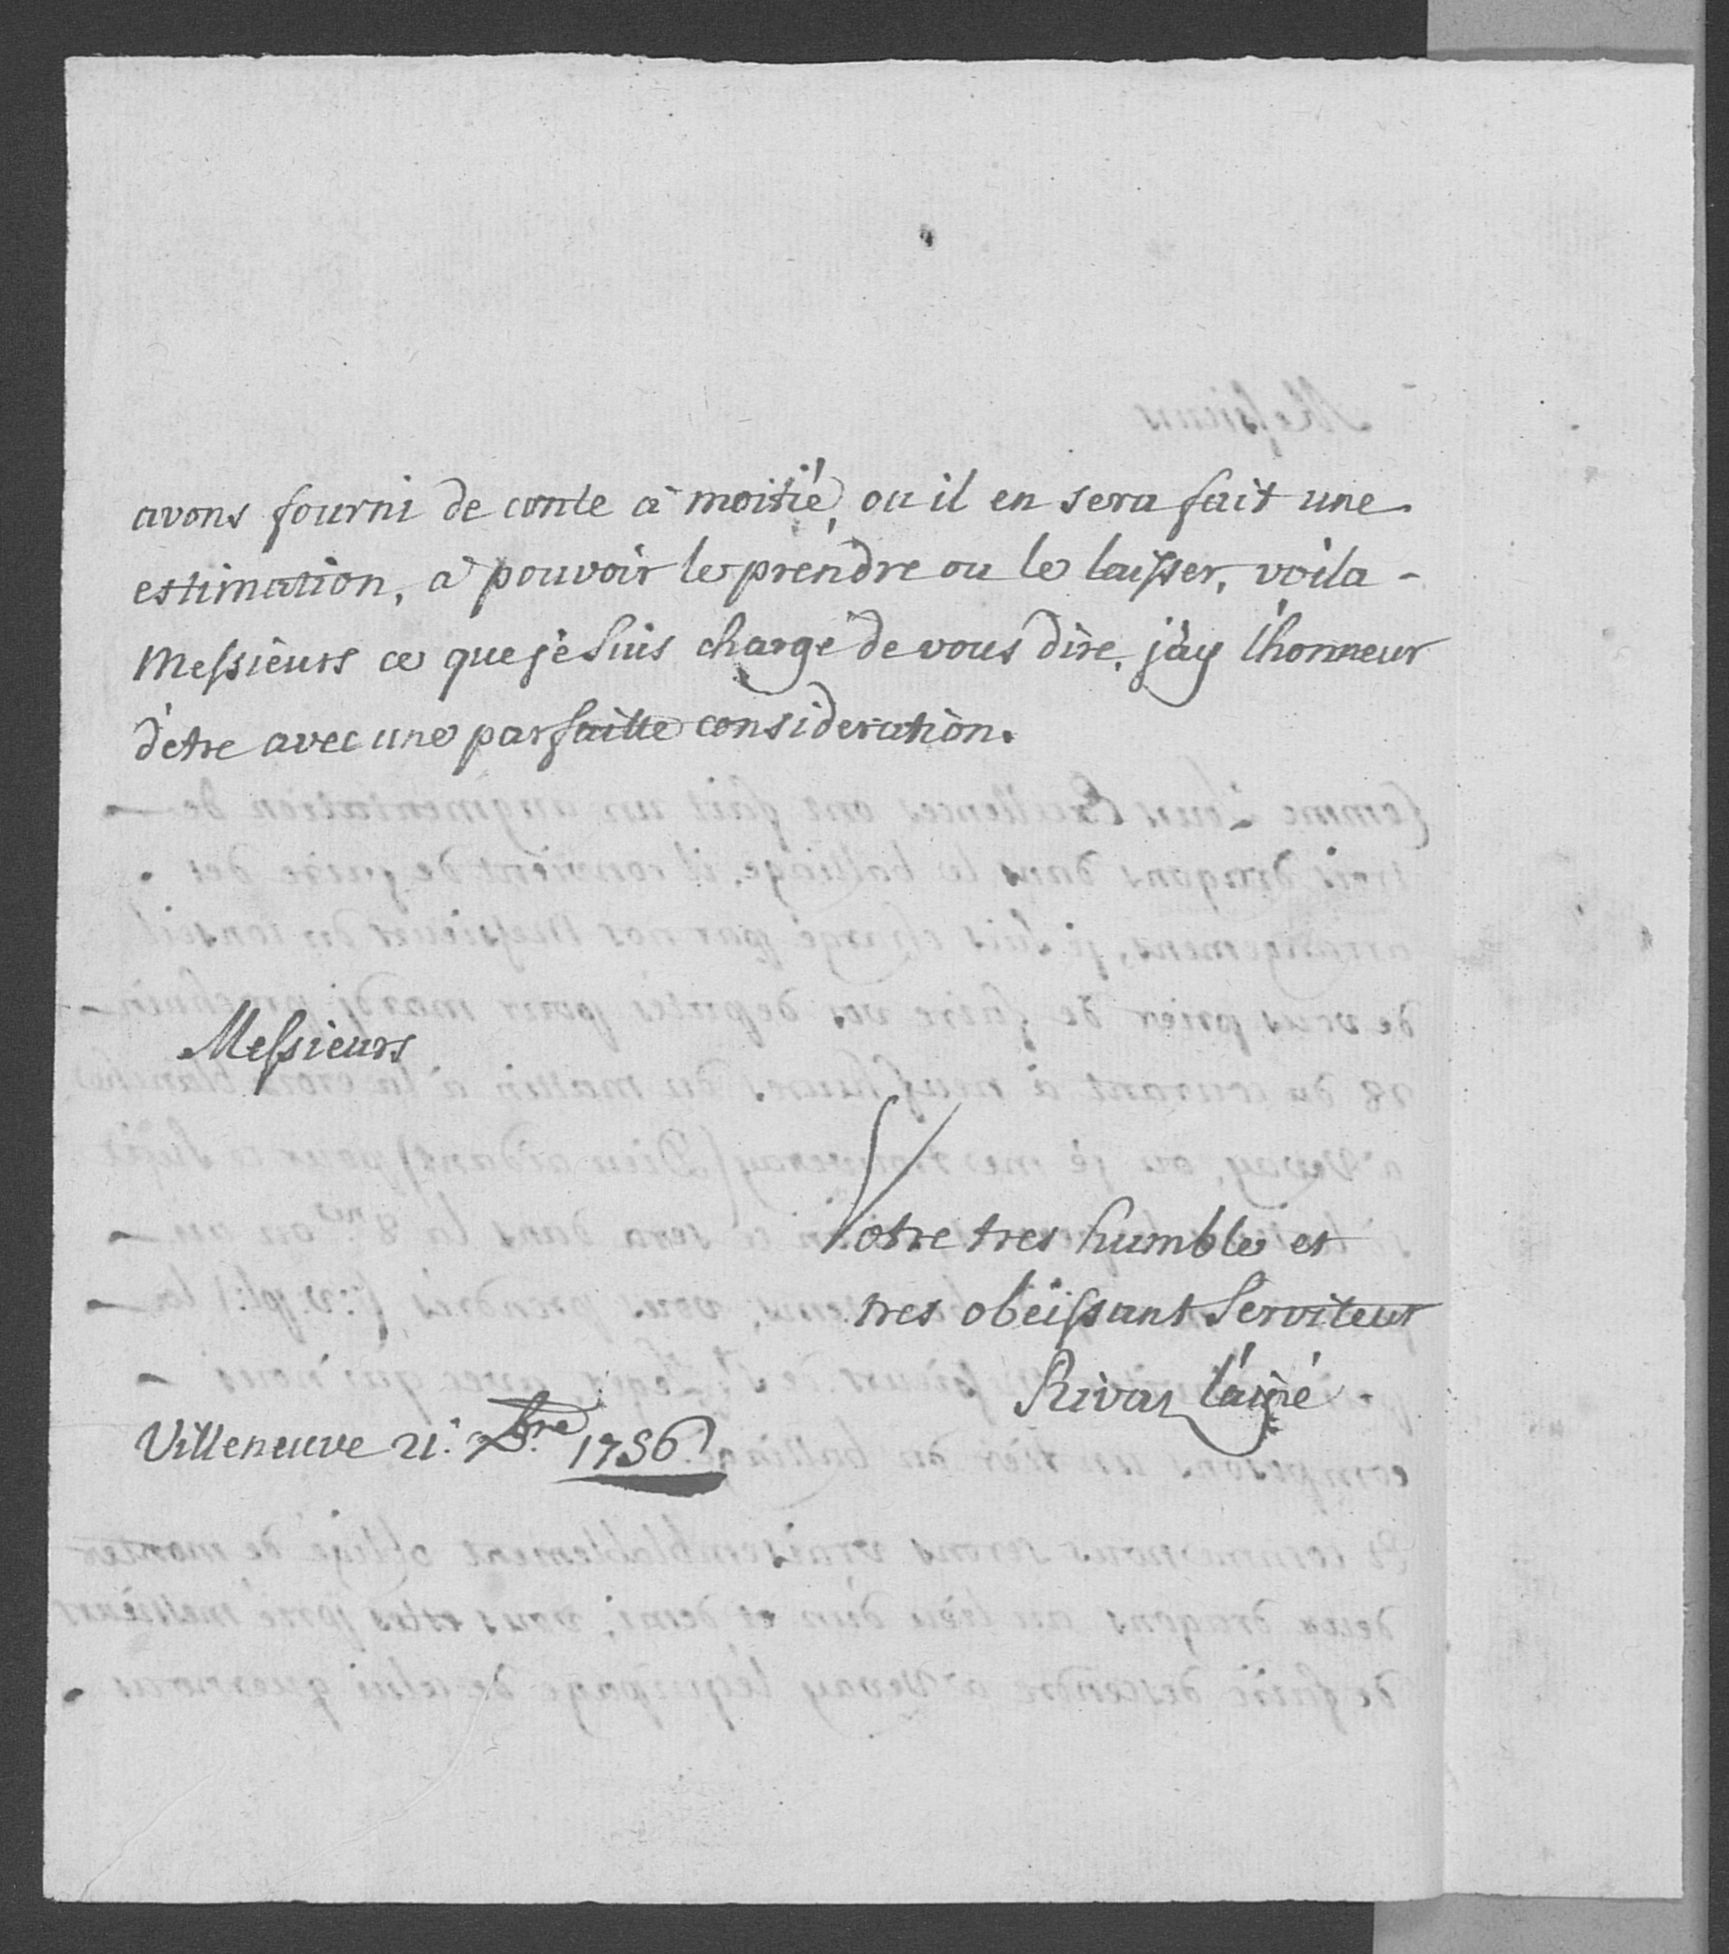 avons fourni de conte à moitié, ou il en sera fait une
estimation, à pouvoir le prendre ou le laisser, voila -
Messieurs ce que je suis chargé de vous dire, j'ay l'honneur
d'etre avec une parfaitte consideration.
Messieurs
Votre tres humble et
tres obeissant Serviteur
Rivaz l'ainé.
Villeneuve 21. 7bre 1756